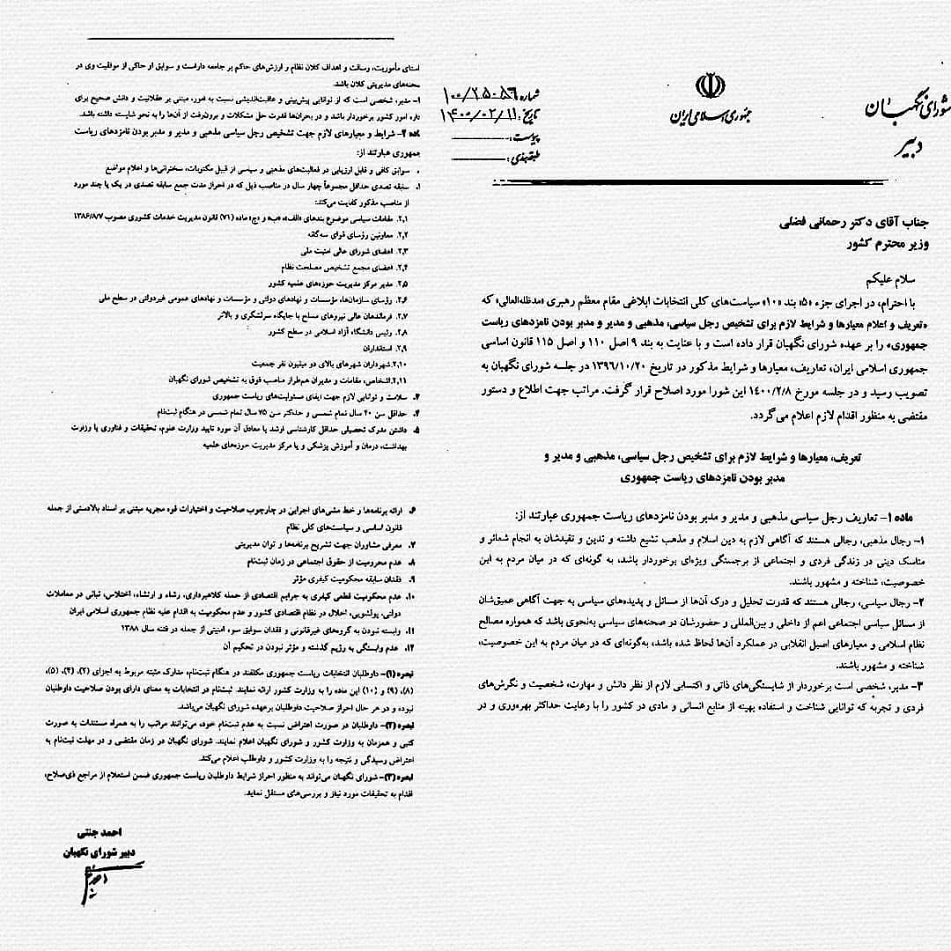 شورای نگهبان
دبیر
جمهوری اسلامی ایران
شماره: ۱۰۰/۲۵۰۸۶
تاریخ: ۱۴۰۰/۰۲/۱۱
پیوست:
طبقه‌بندی:
جناب آقای دکتر رحمانی فضلی
وزیر محترم کشور
سلام علیکم
با احترام، در اجرای جزء «۵» بند «۱۰» سیاست‌های کلی انتخابات ابلاغی مقام معظم رهبری «مدظله‌العالی» که
«تعریف و اعلام معیارها و شرایط لازم برای تشخیص رجل سیاسی، مذهبی و مدیر و مدبر بودن نامزدهای ریاست
جمهوری» را بر عهده شورای نگهبان قرار داده است و با عنایت به بند ۹ اصل ۱۱۰ و اصل ۱۱۵ قانون اساسی
جمهوری اسلامی ایران، تعاریف، معیارها و شرایط مذکور در تاریخ ۱۳۹۶/۱۰/۲۰ در جلسه شورای نگهبان به
تصویب رسید و در جلسه مورخ ۱۴۰۰/۲/۸ این شورا مورد اصلاح قرار گرفت. مراتب جهت اطلاع و دستور
مقتضی به منظور اقدام لازم اعلام می‌گردد.
تعریف، معیارها و شرایط لازم برای تشخیص رجل سیاسی، مذهبی و مدیر و
مدبر بودن نامزدهای ریاست جمهوری
ماده ۱- تعاریف رجل سیاسی مذهبی و مدیر و مدبر بودن نامزدهای ریاست جمهوری عبارتند از:
۱- رجال مذهبی، رجالی هستند که آگاهی لازم به دین اسلام و مذهب تشیع داشته و تدین و تقیدشان به انجام شعائر و
مناسک دینی در زندگی فردی و اجتماعی از برجستگی ویژه‌ای برخوردار باشد، به گونه‌ای که در میان مردم به این
خصوصیت، شناخته و مشهور باشند.
۲- رجال سیاسی، رجالی هستند که قدرت تحلیل و درک آن‌ها از مسائل و پدیده‌های سیاسی به جهت آگاهی عمیق‌شان
از مسائل سیاسی اجتماعی اعم از داخلی و بین‌المللی و حضورشان در صحنه‌های سیاسی به‌نحوی باشد که همواره مصالح
نظام اسلامی و معیارهای اصیل انقلابی در عملکرد آن‌ها لحاظ شده باشد، به‌گونه‌ای که در میان مردم به این خصوصیت،
شناخته و مشهور باشند.
۳- مدیر، شخصی است برخوردار از شایستگی‌های ذاتی و اکتسابی لازم از نظر دانش و مهارت، شخصیت و نگرش‌های
فردی و تجربه که توانایی شناخت و استفاده بهینه از منابع انسانی و مادی در کشور را با رعایت حداکثر بهره‌وری و در
استای مأموریت، رسالت و اهداف کلان نظام و ارزش‌های حاکم بر جامعه داراست و سوابق او حاکی از موفقیت وی در
صحنه‌های مدیریتی کلان باشد.
مدبر، شخصی است که از توانایی پیش‌بینی و عاقبت‌اندیشی نسبت به امور، مبتنی بر عقلانیت و دانش صحیح برای
داره امور کشور برخوردار باشد و در بحران‌ها قدرت حل مشکلات و برون‌رفت از آن‌ها را به نحو شایسته داشته باشد.
ماده ۲- شرایط و معیارهای لازم جهت تشخیص رجل سیاسی مذهبی و مدیر و مدبر بودن نامزدهای ریاست
جمهوری عبارتند از:
سوابق کافی و قابل ارزیابی در فعالیت‌های مذهبی و سیاسی از قبیل مکتوبات، سخنرانی‌ها و اعلام مواضع
سابقه تصدی حداقل مجموعاً چهار سال در مناصب ذیل که در احراز مدت جمع سابقه تصدی در یک یا چند مورد
از مناصب مذکور کفایت می‌کند:
۲.۱. مقامات سیاسی موضوع بندهای «الف»، «ب» و «ج» ماده (۷۱) قانون مدیریت خدمات کشوری مصوب ۱۳۸۶/۸/۷
۲.۲. معاونین رؤسای قوای سه‌گانه
۲.۳. اعضای شورای عالی امنیت ملی
۲.۴. اعضای مجمع تشخیص مصلحت نظام
۲.۵. مدیر مرکز مدیریت حوزه‌های علمیه کشور
۲.۶. رؤسای سازمان‌ها، مؤسسات و نهادهای دولتی و مؤسسات و نهادهای عمومی غیردولتی در سطح ملی
۲.۷. فرماندهان عالی نیروهای مسلح با جایگاه سرلشگری و بالاتر
۲.۸. رئیس دانشگاه آزاد اسلامی در سطح کشور
۲.۹. استانداران
۲.۱۰. شهرداران شهرهای بالای دو میلیون نفر جمعیت
۲.۱۱. اشخاص، مقامات و مدیران هم‌طراز مناصب فوق به تشخیص شورای نگهبان
۳. سلامت و توانایی لازم جهت ایفای مسئولیت‌های ریاست جمهوری
۴. حداقل سن ۴۰ سال تمام شمسی و حداکثر سن ۷۵ سال تمام شمسی در هنگام ثبت‌نام
۵. داشتن مدرک تحصیلی حداقل کارشناسی ارشد یا معادل آن مورد تایید وزارت علوم، تحقیقات و فناوری یا وزارت
بهداشت، درمان و آموزش پزشکی و یا مرکز مدیریت حوزه‌های علمیه
۶. ارائه برنامه‌ها و خط مشی‌های اجرایی در چارچوب صلاحیت و اختیارات قوه مجریه مبتنی بر اسناد بالادستی از جمله
قانون اساسی و سیاست‌های کلی نظام
۷. معرفی مشاوران جهت تشریح برنامه‌ها و توان مدیریتی
۸. عدم محرومیت از حقوق اجتماعی در زمان ثبت‌نام
۹. فقدان سابقه محکومیت کیفری مؤثر
۱۰. عدم محکومیت قطعی کیفری به جرایم اقتصادی از جمله کلاهبرداری، رشاء و ارتشاء، اختلاس، تبانی در معاملات
دولتی، پولشویی، اخلال در نظام اقتصادی کشور و عدم محکومیت به اقدام علیه نظام جمهوری اسلامی ایران
۱۱. وابسته نبودن به گروه‌های غیرقانونی و فقدان سوابق سوء امنیتی از جمله در فتنه سال ۱۳۸۸
۱۲. عدم وابستگی به رژیم گذشته و مؤثر نبودن در تحکیم آن
تبصره (۱)- داوطلبان انتخابات ریاست جمهوری مکلفند در هنگام ثبت‌نام، مدارک مثبته مربوط به اجزای (۲)، (۴)، (۵)،
(۸)، (۹) و (۱۰) این ماده را به وزارت کشور ارائه نمایند. ثبت‌نام در انتخابات به معنای دارای بودن صلاحیت داوطلبان
نبوده و در هر حال احراز صلاحیت داوطلبان برعهده شورای نگهبان می‌باشد.
تبصره (۲)- داوطلبان در صورت اعتراض نسبت به عدم ثبت‌نام خود، می‌توانند مراتب را به همراه مستندات به صورت
کتبی و همزمان به وزارت کشور و شورای نگهبان اعلام نمایند. شورای نگهبان در زمان مقتضی و در مهلت ثبت‌نام به
اعتراض رسیدگی و نتیجه را به وزارت کشور و داوطلب اعلام می‌کند.
تبصره (۳)- شورای نگهبان می‌تواند به منظور احراز شرایط داوطلبان ریاست جمهوری ضمن استعلام از مراجع ذی‌صلاح،
اقدام به تحقیقات مورد نیاز و بررسی‌های مستقل نماید.
احمد جنتی
دبیر شورای نگهبان